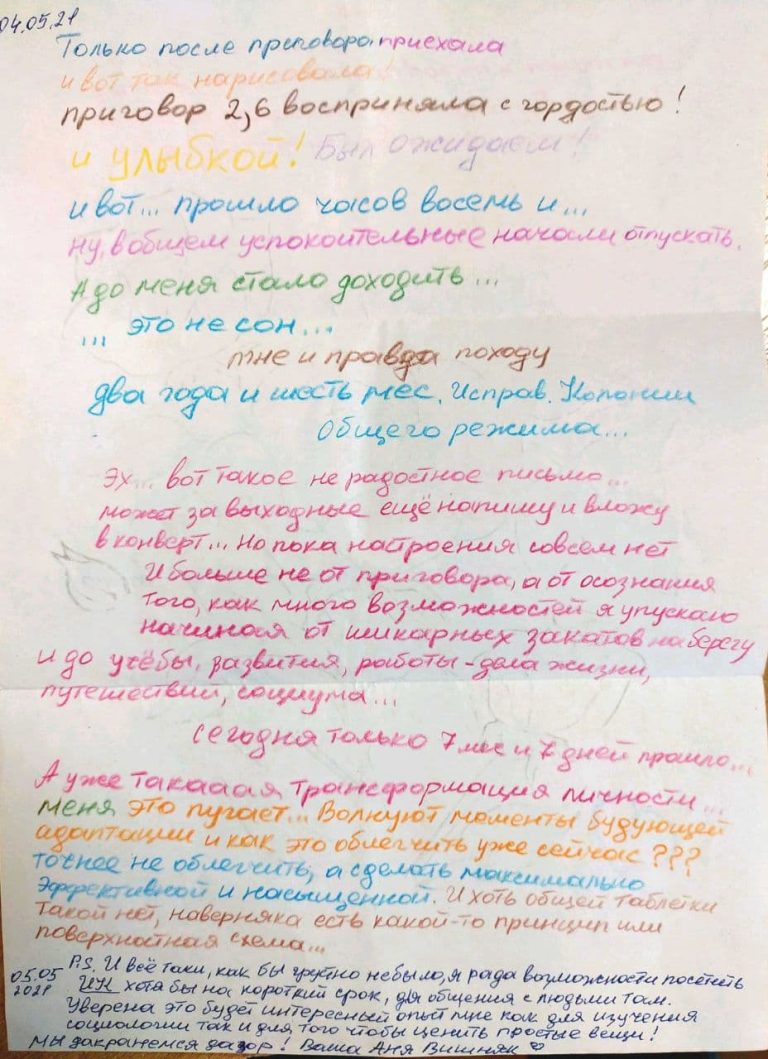 04.05.21
Только после приговора приехала
и вот так нарисовала!
приговор 2,6 восприняла с гордостью!
и улыбкой! Был ожидаем!
и вот... прошло часов восемь и...
ну, в общем успокоительные начали отпускать.
А до меня стало доходить...
... это не сон...
мне и правда походу
два года и шесть мес. Исправ. Колонии
общего режима...
Эх... вот такое не радостное письмо...
может за выходные ещё напишу и вложу
в конверт... Но пока настроения совсем нет
И больше не от приговора, а от осознания
того, как много возможностей я упускаю
начиная от шикарных закатов на берегу
и до учёбы, развития, работы - дела жизни,
путешествий, социума...
Сегодня только 7 мес и 7 дней прошло...
А уже такаааая трансформация личности...
меня это пугает... Волнуют моменты будующей
адаптации и как это облегчить уже сейчас???
точнее не облегчить, а сделать максимально
эффективной и насыщенной. И хоть общей таблетки
такой нет, наверняка есть какой-то принцип или
поверхностная схема...
05.05 2021
P.S. И всё таки, как бы грустно небыло, я рада возможности посетить
ИК хотя бы на короткий срок, для общения с людьми там.
Уверена это будет интересный опыт мне как для изучения
социологии так и для того чтобы ценить простые вещи!
Мы дакранемся да зор! Ваша Аня Вишняк ♡